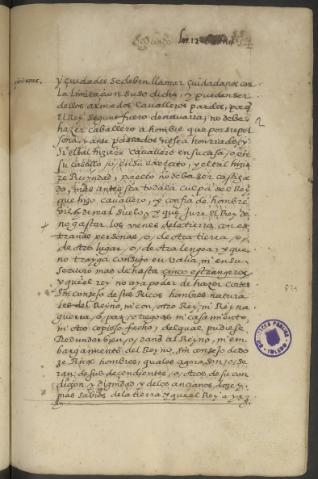 y Ciudades se deben llamar Ciudadanos con
la limitacion suso dicha, y pueden ser
dellos armados Cavalleros pardos, pero
el Rey segun fuero de
hazer Caballero a hombre que por su per
sona, o ante passados no sea honrrado, y
si el tal hiziere Cavallero en su casa, o en
su castillo
ze Rey no deba ser castiga
do, mas antes sea toda la culpa de el Rey
que hizo Cavallero, y confia de hombre
vil, y de mal suelo, y que Jure el Rey de
no gastar los vienes de la tierra con es
trañas personas, o, de otra tierra, o,
de otro lugar, o, de otra lengua, y que
no trayga consigo en Valia ni en su
seguro mas de hasta cinco estrangeros,
y que el rey no aya poder de hazer Cortes
sin consejo de sus Ricos hombres natura
les del Reyno, ni con otro Rey, ni Reyna
guerra, o, paz, o, tregoas, ni casamiento
ni otro copioso fecho, del qual pudiese
Redundar bien, o, dano al Reyno, ni em
bargamiento del Reyno, sin consejo de do
ze Ricos hombres, quales agora son, o, se
ran, de sus decendientes, o, otros de su con
dicion, y dignidad, y de los ancianos doze
mas sabios de la tierra, y que el Rey aya